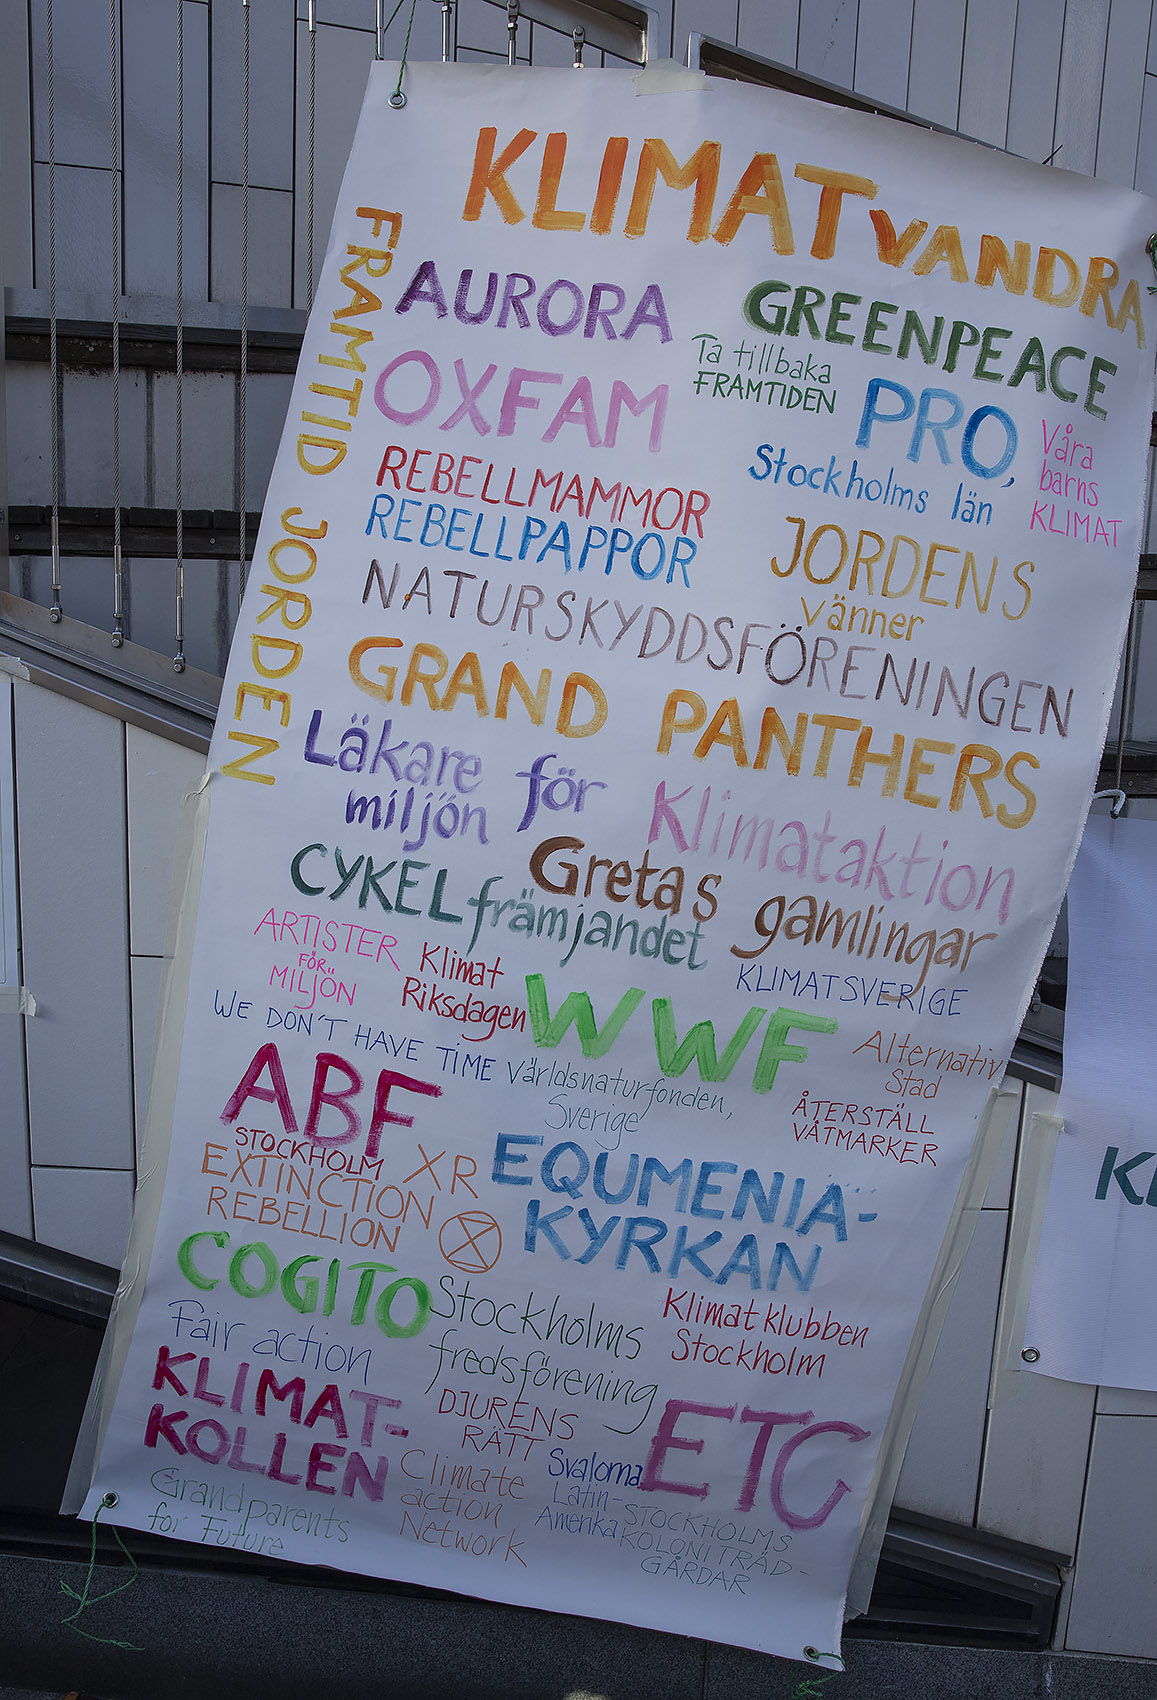 KLIMATVANDRA
FRAMTID JORDEN
AURORA
GREENPEACE
OXFAM
Ta tillbaka
FRAMTIDEN
PRO,
Stockholms län
Våra
barns
KLIMAT
REBELLMAMMOR
REBELLPAPPOR
JORDENS
vänner
NATURSKYDDSFÖRENINGEN
GRAND PANTHERS
Läkare för
miljön
Klimataktion
Gretas gamlingar
CYKELfrämjandet
ARTISTER
FÖR
MILJÖN
Klimat
Riksdagen
KLIMATSVERIGE
WWF
Världsnaturfonden,
Sverige
Alternativ
Stad
WE DON'T HAVE TIME
ÅTERSTÄLL
VÅTMARKER
ABF
STOCKHOLM
XR
EXTINCTION
REBELLION
EQUMENIA-
KYRKAN
COGITO
Stockholms
fredsförening
Klimatklubben
Stockholm
Fair action
KLIMAT-
KOLLEN
DJURENS
RÄTT
ETC
Climate
action
Network
Svalorna
Latin-
Amerika
STOCKHOLMS
KOLONITRÄD-
GÅRDAR
Grandparents
for Future